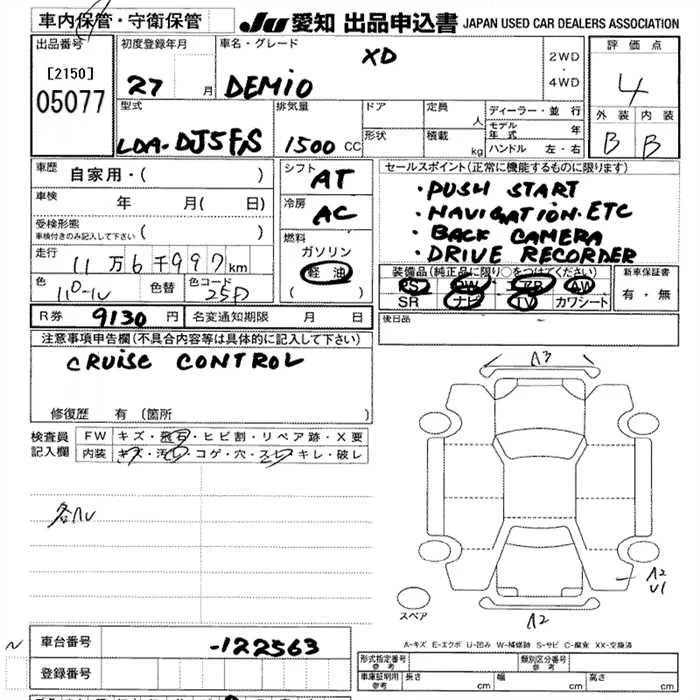 車内保管・守衛保管
JU 愛知 出品申込書 JAPAN USED CAR DEALERS ASSOCIATION
出品番号
[2150]
05077
初度登録年月
27 月
車名・グレード
XD
DEMIO
2WD
・
4WD
評価点
4
外装 内装
B B
型式
LDA-DJ5FS
排気量
1500 CC
ドア
定員
人
形状
積載
kg
ディーラー・並行
モデル年式 年
ハンドル 左・右
車歴
自家用・( )
車検
年 月( 日)
受検形態
車検付きのみ記入して下さい ( )
走行
11万6千997km
色
色替
色コード
25D
シフト
AT
冷房
AC
燃料
ガソリン
軽油
( )
セールスポイント(正常に機能するものに限ります)
・PUSH START
・NAVIGATION・ETC
・BACK CAMERA
・DRIVE RECORDER
装備品(純正品に限り○をつけてください)
PS PW エアB AW
SR ナビ TV カワシート
新車保証書
有・無
R券 9130円 名変通知期限 月 日
後日品
注意事項申告欄(不具合内容等は具体的に記入して下さい)
CRUISE CONTROL
修復歴 有 (箇所 )
検査員記入欄
FW キズ・飛石・ヒビ割・リペア跡・X要
内装 キズ・汚レ・コゲ・穴・スレ・キレ・破レ
A3
A2
U1
A2
スペア
A-キズ E-エクボ U-凹み W-補修跡 S-サビ C-腐食 XX-交換済
車台番号
-122563
登録番号
形式指定番号 参考
類別区分番号 参考
車庫証明用 参考
長さ cm
幅 cm
高さ cm